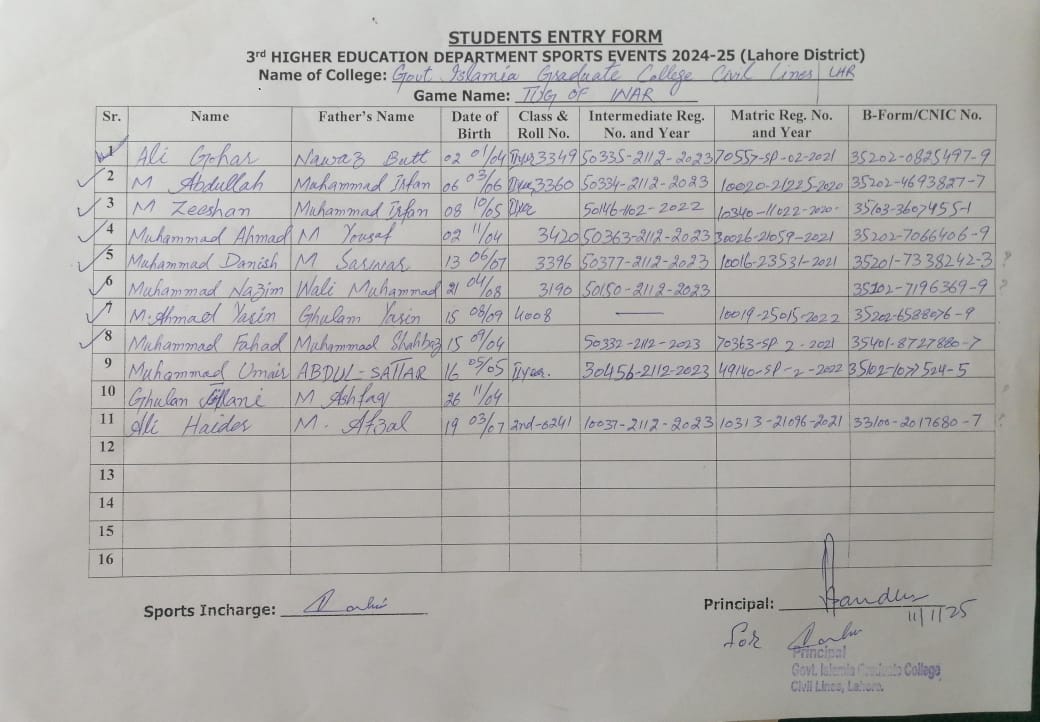 STUDENTS ENTRY FORM
3rd HIGHER EDUCATION DEPARTMENT SPORTS EVENTS 2024-25 (Lahore District)
Name of College: Govt. Islamia Graduate College Civil Lines LHR
Game Name: TUG OF WAR
Sr. Name Father's Name Date of Birth Class & Roll No. Intermediate Reg. No. and Year Matric Reg. No. and Year B-Form/CNIC No.
1 Ali Gohar Nawaz Butt 02 01/04 3349 50335-2112-2023 70557-SP-02-2021 35202-0825497-9
2 M Abdullah Muhammad Irfan 06 03/06 3360 50334-2112-2023 10020-21225-2020 35202-4693827-7
3 M Zeeshan Muhammad Irfan 08 10/05 50146-1102-2022 10340-11022-2020- 35103-3607455-1
4 Muhammad Ahmad M Yousaf 02 11/04 3420 50363-2112-2023 30026-21059-2021 35202-7066406-9
5 Muhammad Danish M Sarwar 13 06/07 3396 50377-2112-2023 10016-23531-2021 35201-7338242-3 ?
6 Muhammad Nazim Wali Muhammad 21 04/08 3190 50150-2112-2023 35202-7196369-9 ?
7 M. Ahmad Yasin Ghulam Yasin 15 08/09 4008 — 10019-25015-2022 35202-6588076-9
8 Muhammad Fahad Muhammad Shahbaz 15 09/04 50332-2112-2023 70363-SP-2-2021 35401-8727880-7
9 Muhammad Umair ABDUL-SATTAR 16 05/05 II year. 30456-2112-2023 49140-SP-2-2022 35102-1071524-5
10 Ghulam M Ashfaq 26 11/04
11 Ali Haider M. Afzal 19 03/07 2nd-6241 10037-2112-2023 10313-21096-2021 33100-2017680-7 ?
12
13
14
15
16
Sports Incharge:
Principal:
11/1/25
for
Principal
Govt. Islamia Graduate College
Civil Lines, Lahore.